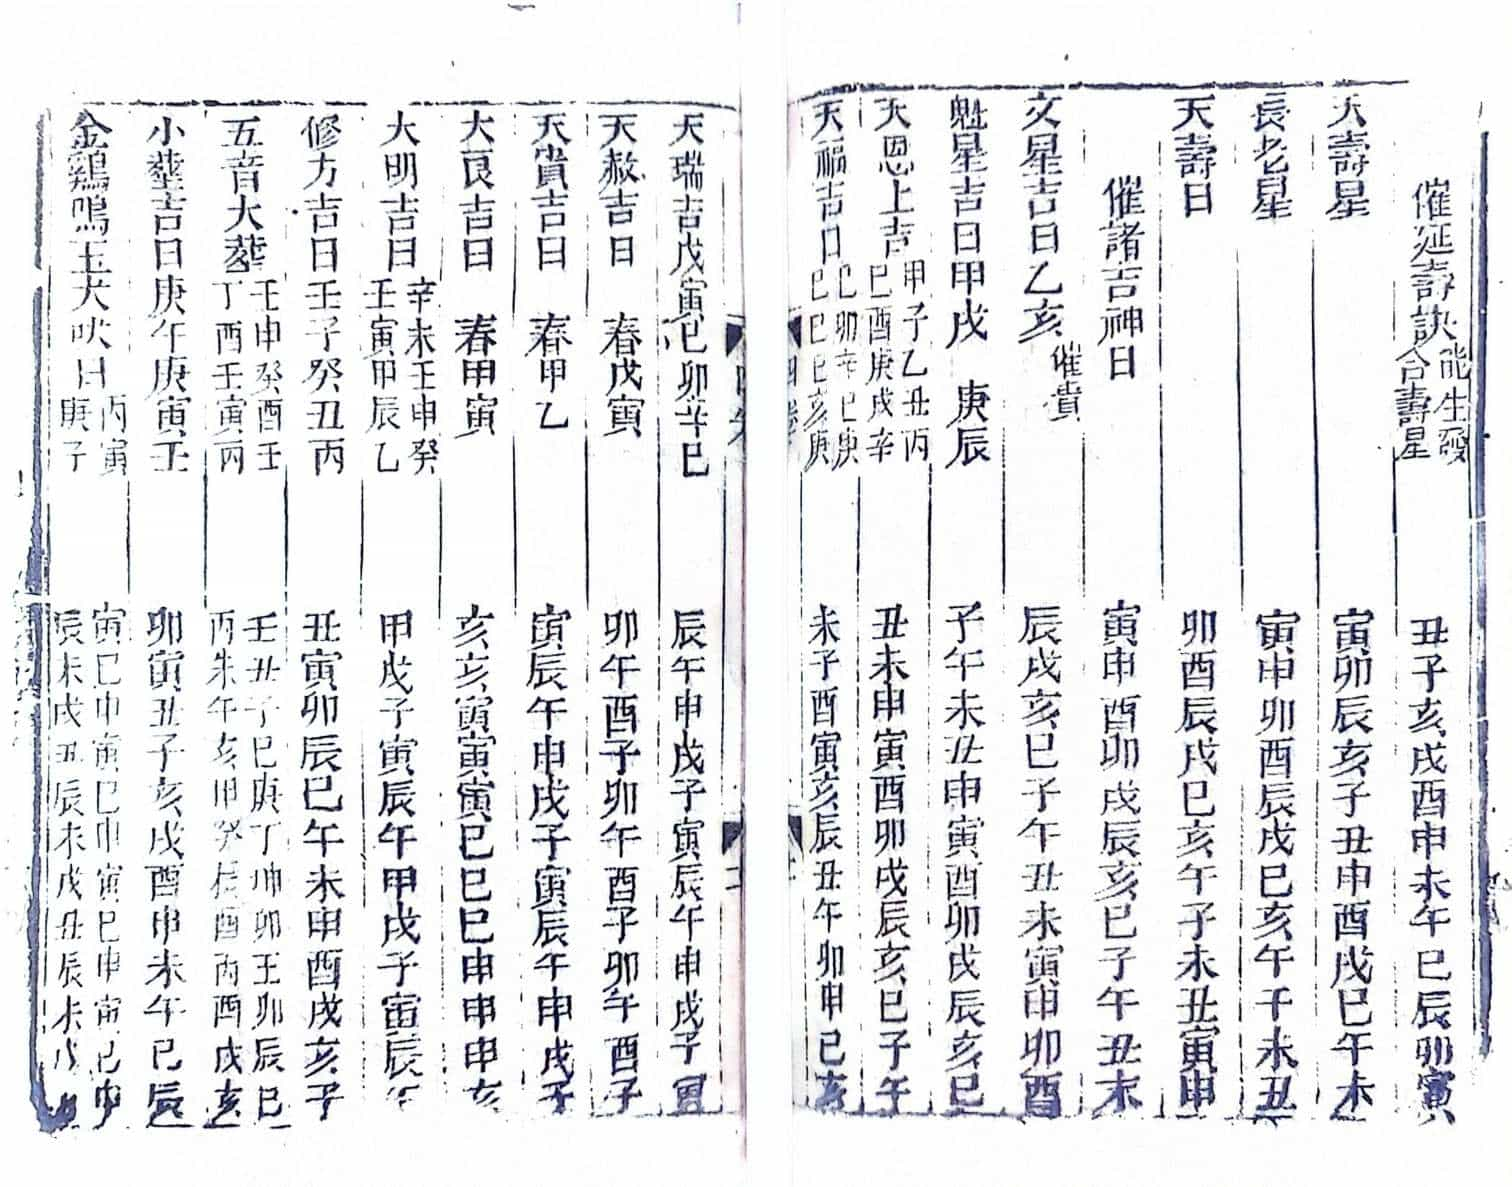 催延壽訣能生發合壽星 丑子亥戌酉申未午巳辰卯寅
天壽星 寅卯辰亥子丑申酉戌巳午未
長老星 寅申卯酉辰戌巳亥午子未丑
天壽日 卯酉辰戌巳亥午子未丑寅申
催諸吉神日 寅申酉卯戌辰亥巳子午丑未
文星吉日乙亥催貴 辰戌亥巳子午丑未寅申卯酉
魁星吉日甲戌 庚辰 子午未丑申寅酉卯戌辰亥巳
天恩上吉甲子乙丑丙己酉庚戌辛 丑未申寅酉卯戌辰亥巳子午
天福吉日己卯辛巳庚己巳己亥庚 未子酉寅亥辰丑午卯申巳亥
四卷
天瑞吉戊寅己卯辛巳 辰午申戌子寅辰午申戌子寅
天赦吉日 春戊寅 卯午酉子卯午酉子卯午酉子
天貴吉日 春甲乙 寅辰午申戌子寅辰午申戌子
大良吉日 春甲寅 亥亥寅寅寅巳巳巳申申申亥
大明吉日辛未壬申癸壬寅甲辰乙 甲戌子寅辰午甲戌子寅辰午
修方吉日壬子癸丑丙 丑寅卯辰巳午未申酉戌亥子
五音大葬壬申癸酉壬丁酉壬寅丙 壬丑子巳庚丁坤卯壬卯辰巳丙未午亥甲癸酉丙酉戌亥
小葬吉日庚午庚寅壬 卯寅丑子亥戌酉申未午巳辰
金鷄鳴玉犬吠日丙寅庚子 寅巳申寅巳申寅巳申寅巳申辰未戌丑辰未戌丑辰未戌丑